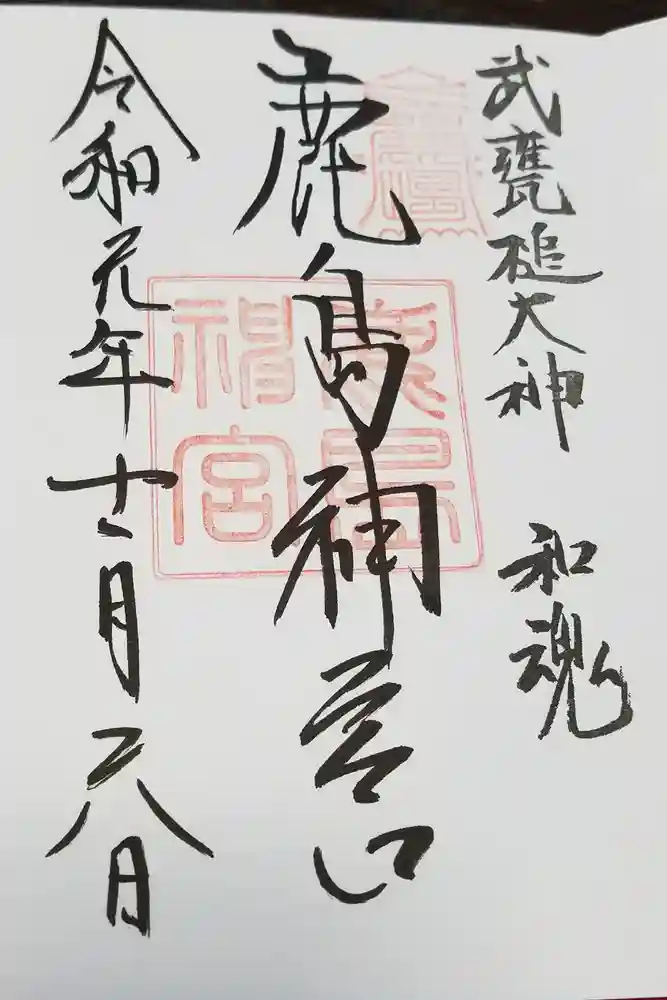 武甕槌大神 和魂
鹿島神宮
鹿島神宮
令和元年十一月二八日